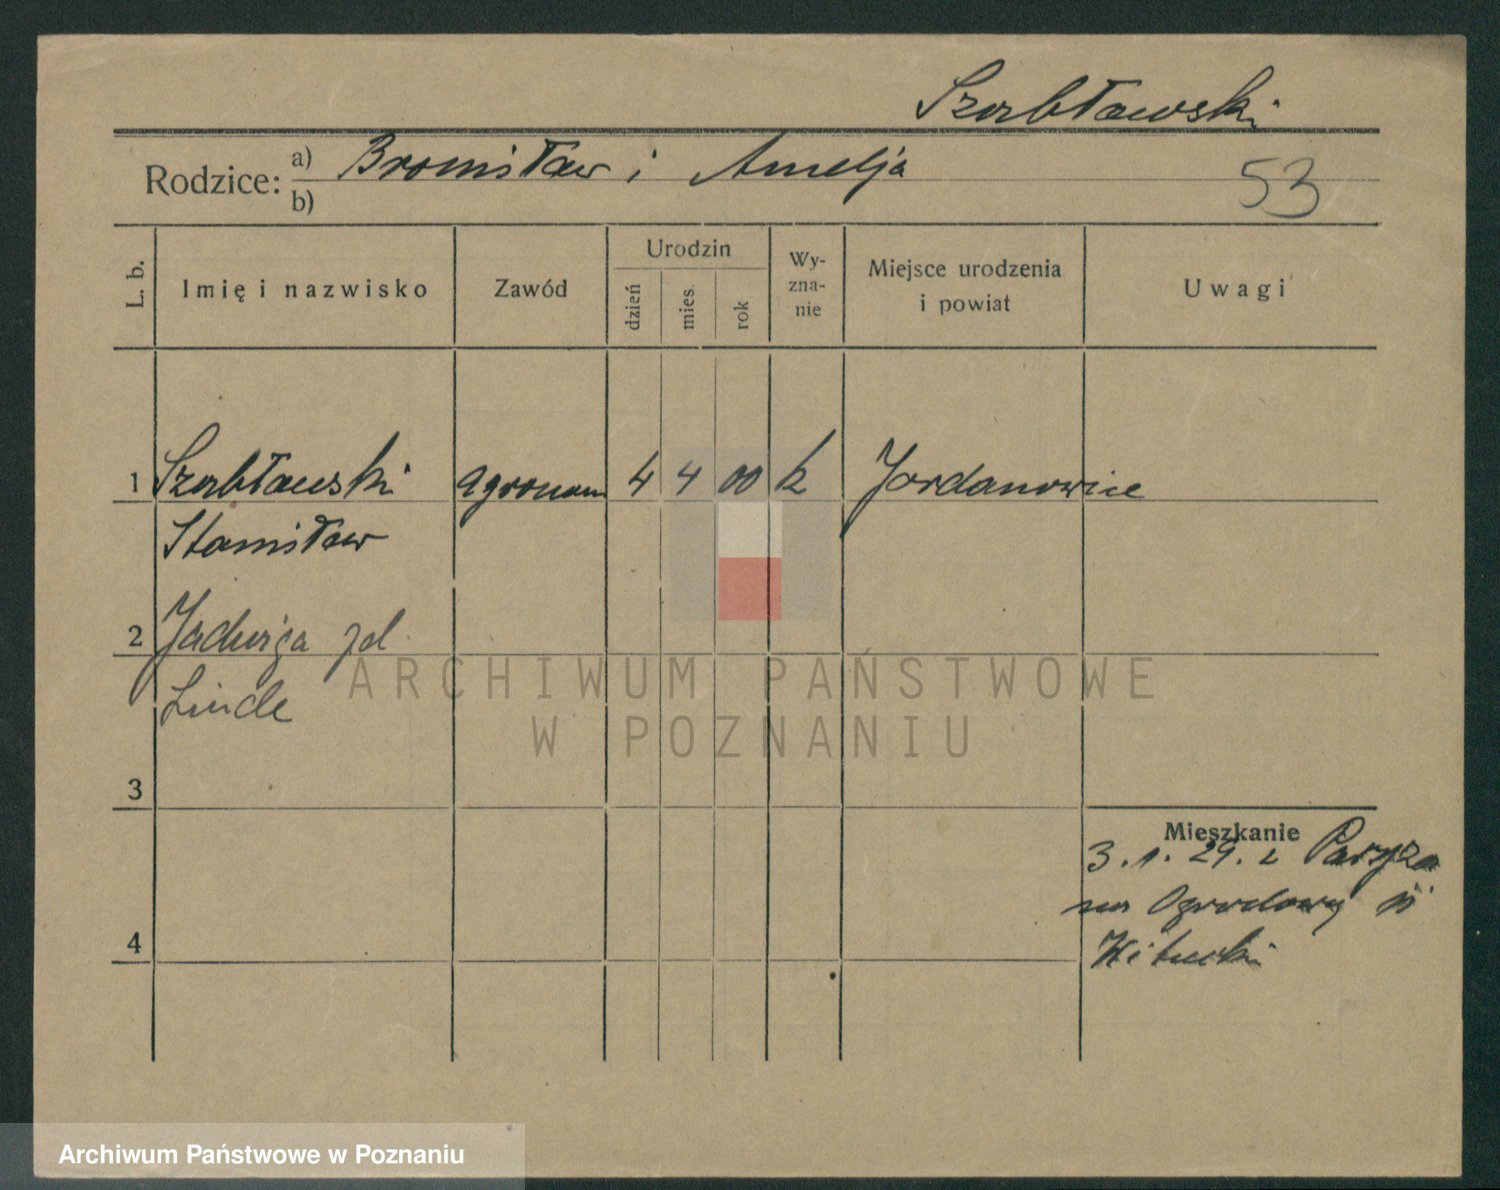 Szabławski
Rodzice: a) Bronisław i Amelja
b)
53
L. b.
Imię i nazwisko
Zawód
Urodzin
dzień
mies.
rok
Wy-
zna-
nie
Miejsce urodzenia
i powiat
Uwagi
1 Szabławski agronom 4 4 00 k Jordanowice
Stanisław
2 Jadwiga
Linde
ARCHIWUM PAŃSTWOWE
W POZNANIU
3
Mieszkanie
3.1.29. z Paryża
na Ogrodową
4
Archiwum Państwowe w Poznaniu